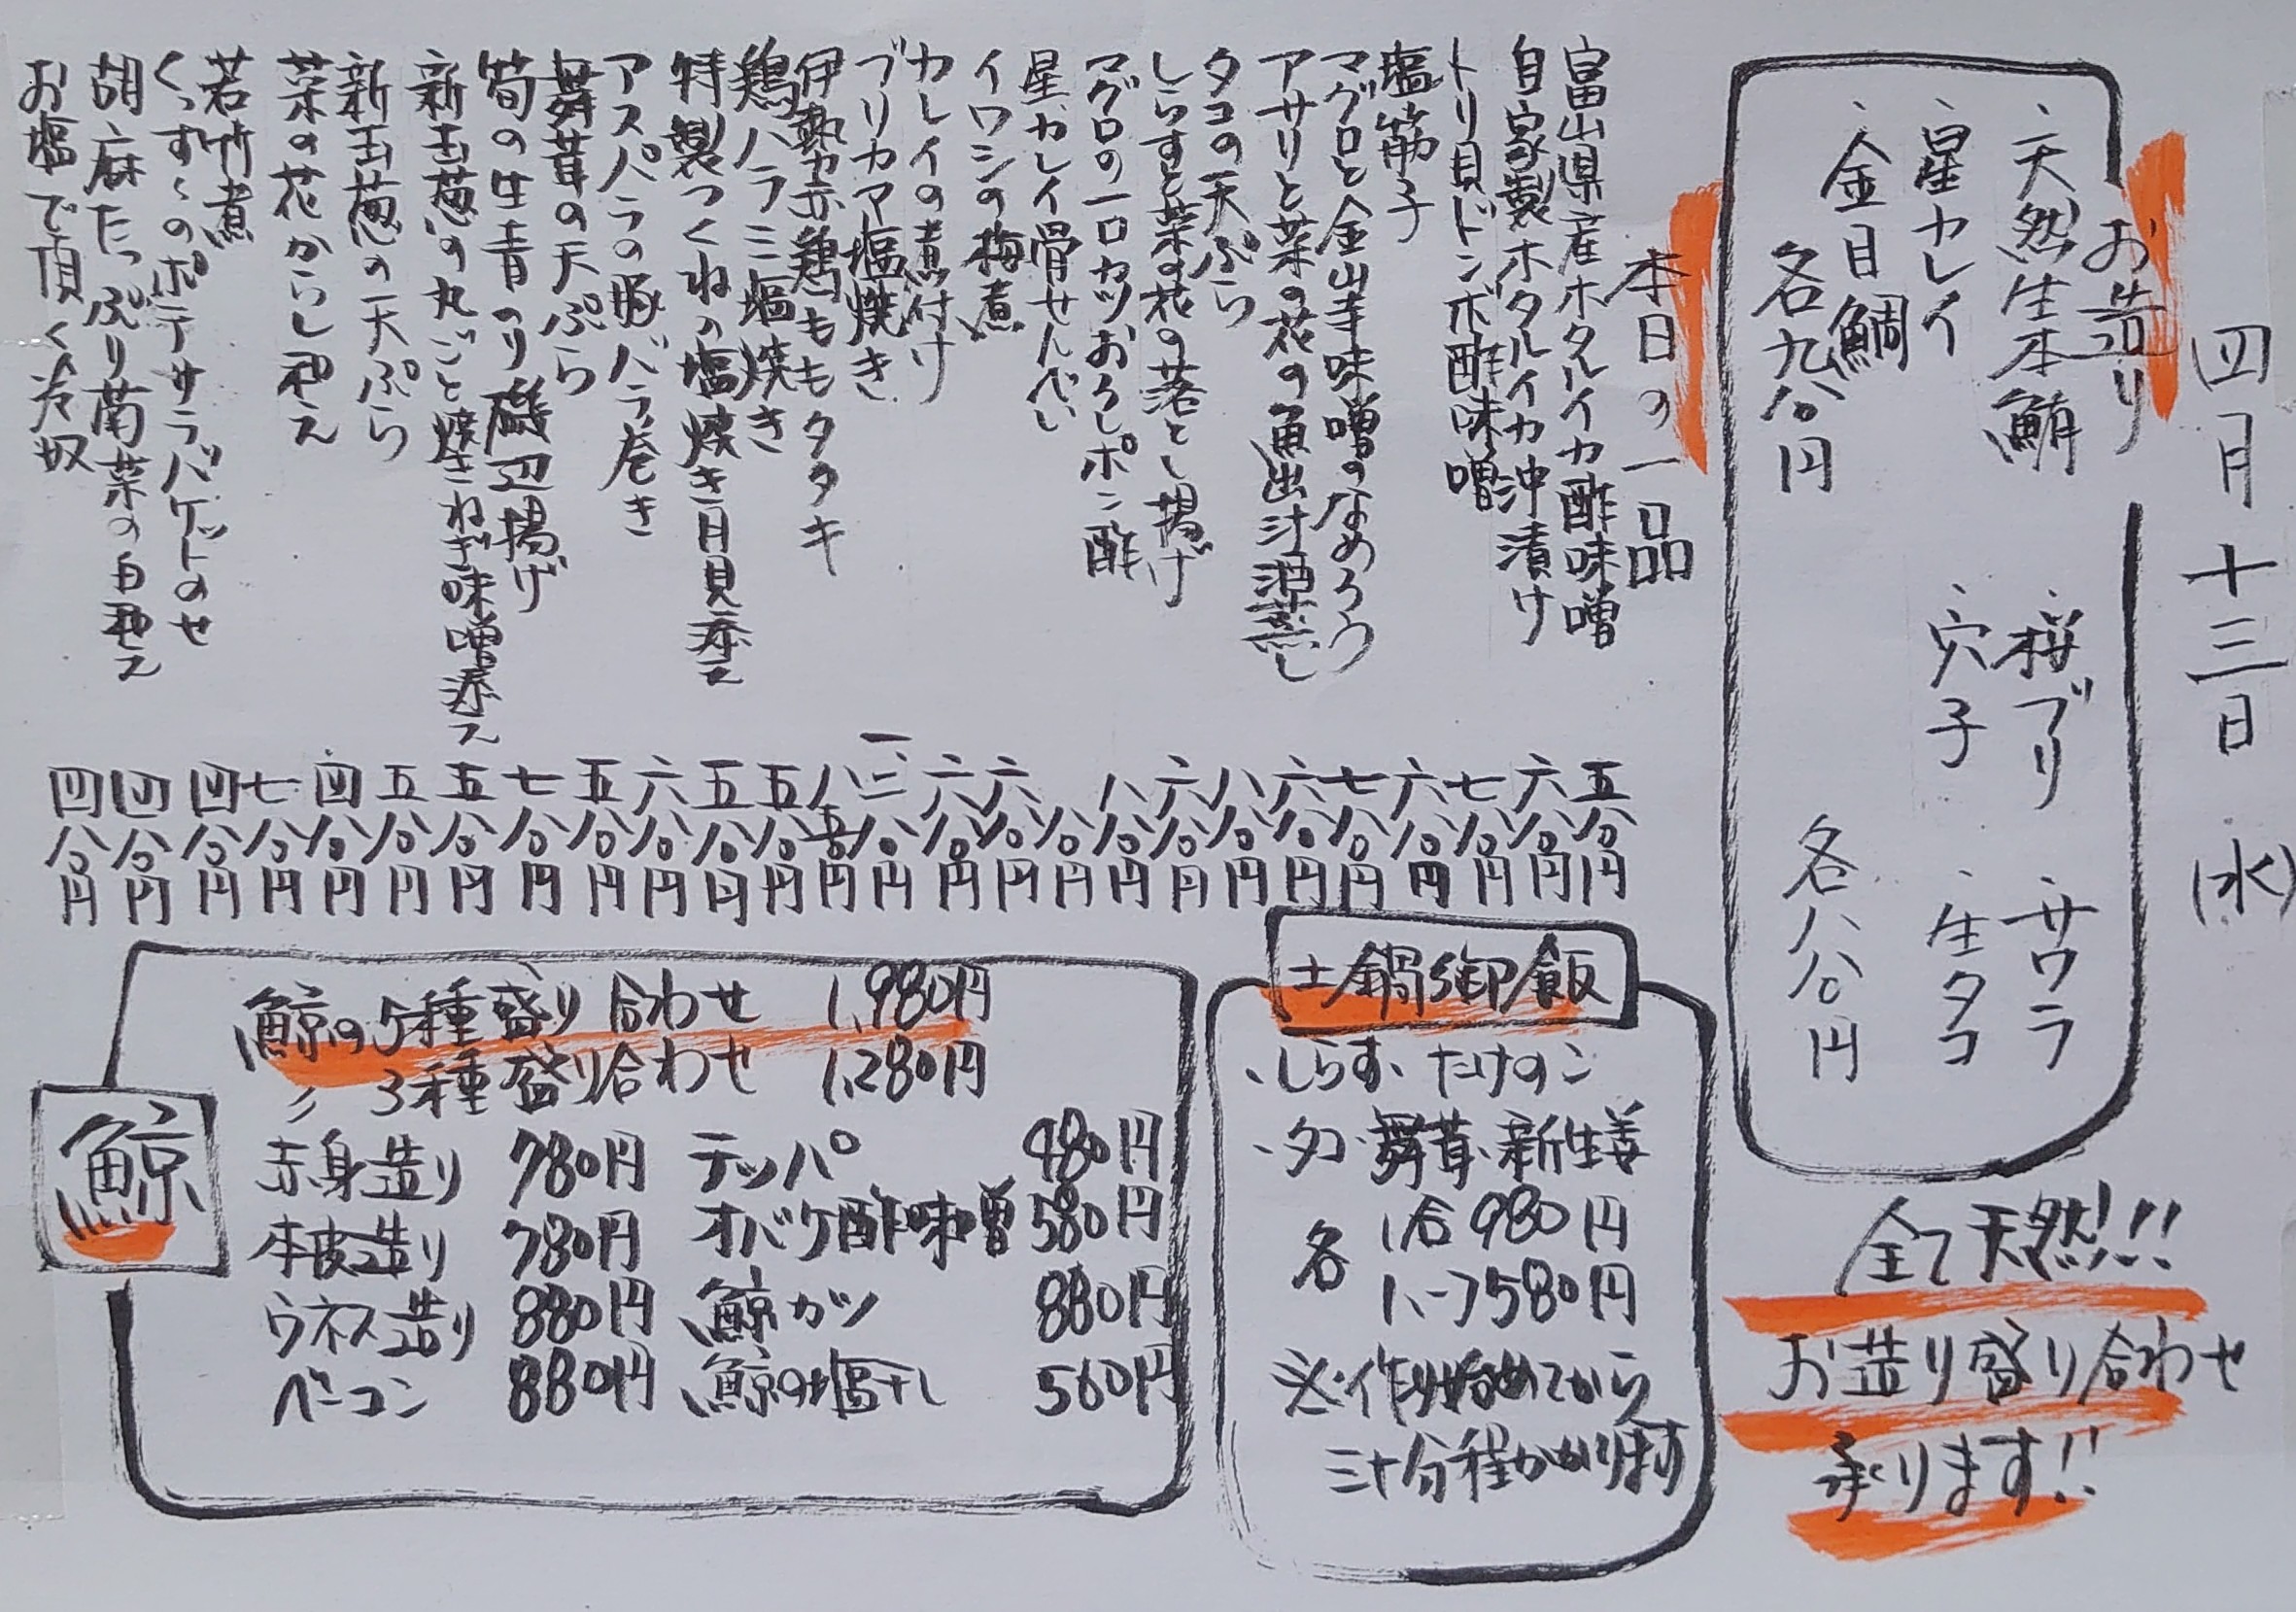 四月十三日(水)
お造り
・天然生本鮪 ・桜ブリ ・サワラ
・星カレイ ・穴子 ・生タコ
・金目鯛
各九八〇円 各八八〇円
全て天然!!!
お造り盛り合わせ
承ります!!
本日の一品
富山県産ホタルイカ酢味噌 五八〇円
自家製ホタルイカ沖漬け 六八〇円
トリ貝ドンボ酢味噌 七八〇円
塩筋子 六八〇円
マグロと金山寺味噌のなめろう 七八〇円
アサリと菜の花の魚出汁酒蒸し 六八〇円
タコの天ぷら 八八〇円
しらすと菜の花の落とし揚げ 六八〇円
マグロの一口カツおろしポン酢 八八〇円
星カレイ骨せんべい 八〇円
イワシの梅煮 六八〇円
カレイの煮付け 六八〇円
ブリカマ塩焼き 一、二八〇円
伊勢赤鶏ももタタキ 八五〇円
鶏ハラミ塩焼き 五八〇円
特製つくねの塩焼き月見添え 五八〇円
アスパラの豚バラ巻き 六八〇円
舞茸の天ぷら 五八〇円
筍の生青のり磯辺揚げ 七八〇円
新玉葱の丸ごと焼きねぎ味噌添え 五八〇円
新玉葱の天ぷら 五八〇円
菜の花からし和え 四八〇円
若竹煮 七八〇円
のポテサラバケットのせ 四八〇円
胡麻たっぷり菊菜の白和え 四八〇円
お塩で頂く冷奴 四八〇円
土鍋御飯
・しらす・たけのこ
・タコ・舞茸・新生姜
各 1合 980円
1.5合 1,580円
※作り始めてから
三十分程かかります
鯨
鯨の5種盛り合わせ 1,980円
〃 3種盛り合わせ 1,280円
赤身造り 780円 テッパ 480円
本皮造り 780円 オバケ酢味噌 580円
ウネス造り 880円 鯨カツ 880円
ベーコン 880円 鯨の塩干し 560円